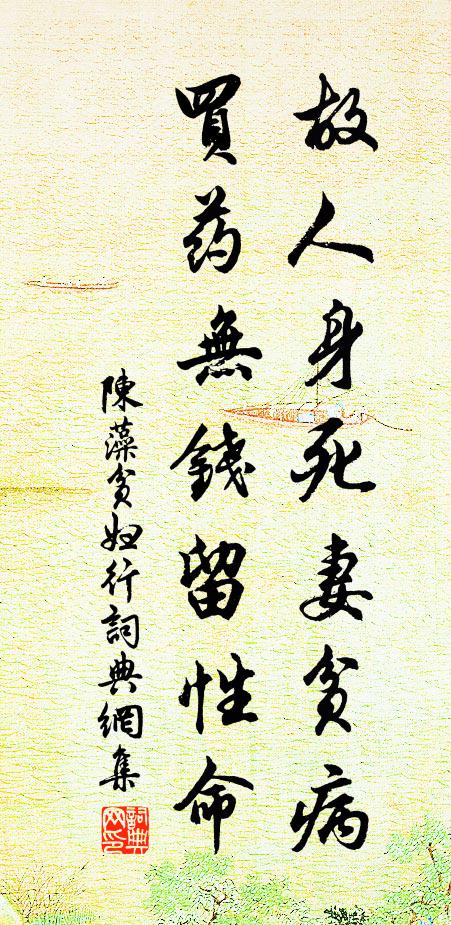 故人身死妻貧病
買药無錢留性命
陳藻貧婦行詞典網集
詞典
网印